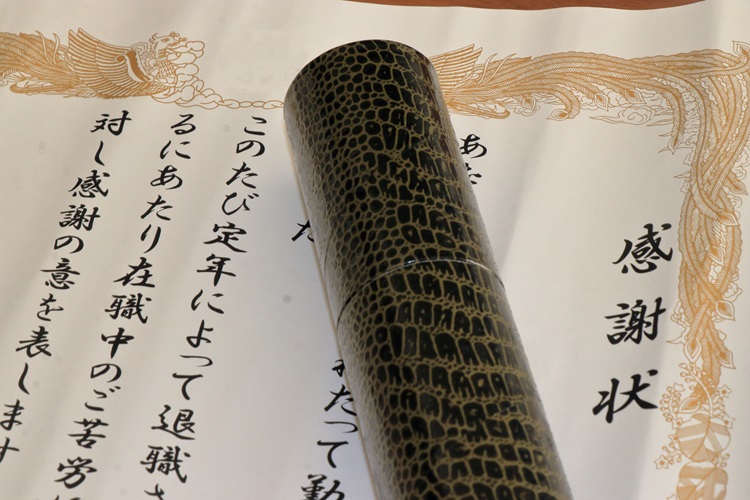 感謝状
あな
た
れたって勤
このたび定年によって退職さ
るにあたり在職中のご苦労に
対し感謝の意を表します